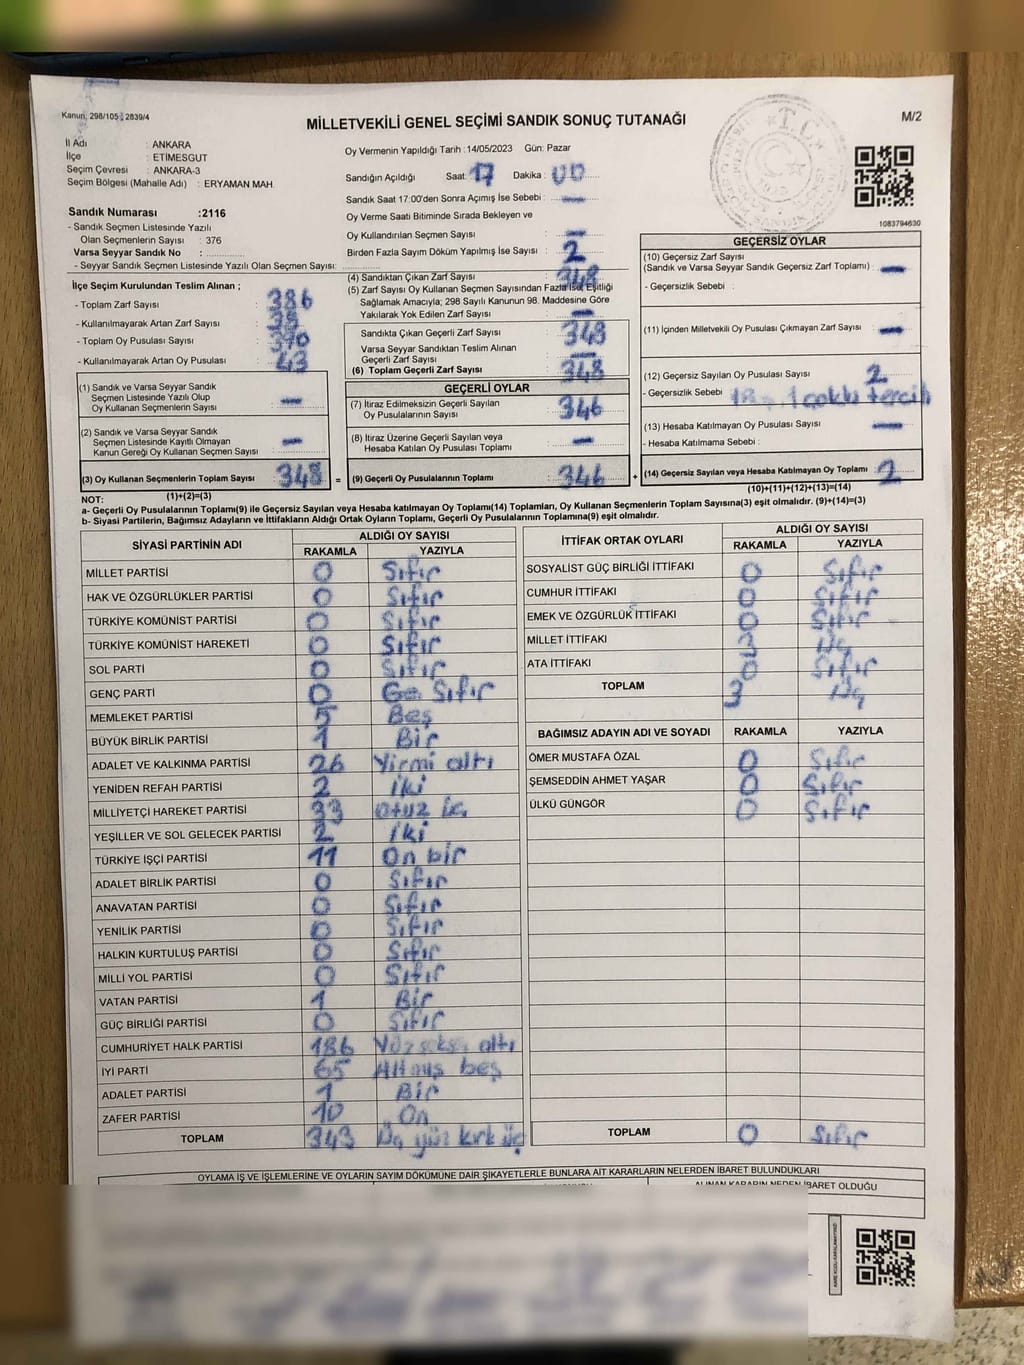 Kanun: 298/105 - 2839/4
MİLLETVEKİLİ GENEL SEÇİMİ SANDIK SONUÇ TUTANAĞI
M/2
İl Adı : ANKARA
İlçe : ETİMESGUT
Seçim Çevresi : ANKARA-3
Seçim Bölgesi (Mahalle Adı) : ERYAMAN MAH.
Oy Vermenin Yapıldığı Tarih :14/05/2023 Gün: Pazar
Sandığın Açıldığı Saat : 17 Dakika : 00
Sandık Saat 17:00'den Sonra Açımış İse Sebebi : —
Oy Verme Saati Bitiminde Sırada Bekleyen ve
Oy Kullandırılan Seçmen Sayısı : —
Birden Fazla Sayım Döküm Yapılmış İse Sayısı : 2
T.C.
1083794630
Sandık Numarası :2116
- Sandık Seçmen Listesinde Yazılı
Olan Seçmenlerin Sayısı : 376
Varsa Seyyar Sandık No :
- Seyyar Sandık Seçmen Listesinde Yazılı Olan Seçmen Sayısı:
İlçe Seçim Kurulundan Teslim Alınan ;
- Toplam Zarf Sayısı : 386
- Kullanılmayarak Artan Zarf Sayısı : 38
- Toplam Oy Pusulası Sayısı : 390
- Kullanılmayarak Artan Oy Pusulası : 43
(1) Sandık ve Varsa Seyyar Sandık
Seçmen Listesinde Yazılı Olup
Oy Kullanan Seçmenlerin Sayısı : —
(2) Sandık ve Varsa Seyyar Sandık
Seçmen Listesinde Kayıtlı Olmayan
Kanun Gereği Oy Kullanan Seçmen Sayısı : —
(3) Oy Kullanan Seçmenlerin Toplam Sayısı : 348
(1)+(2)=(3)
(4) Sandıktan Çıkan Zarf Sayısı : 348
(5) Zarf Sayısı Oy Kullanan Seçmen Sayısından Fazla İse, Eşitliği
Sağlamak Amacıyla; 298 Sayılı Kanunun 98. Maddesine Göre
Yakılarak Yok Edilen Zarf Sayısı : —
Sandıkta Çıkan Geçerli Zarf Sayısı : 348
Varsa Seyyar Sandıktan Teslim Alınan
Geçerli Zarf Sayısı : —
(6) Toplam Geçerli Zarf Sayısı : 348
GEÇERLİ OYLAR
(7) İtiraz Edilmeksizin Geçerli Sayılan
Oy Pusulalarının Sayısı : 346
(8) İtiraz Üzerine Geçerli Sayılan veya
Hesaba Katılan Oy Pusulası Toplamı : —
= (9) Geçerli Oy Pusulalarının Toplamı : 346 +
GEÇERSİZ OYLAR
(10) Geçersiz Zarf Sayısı
(Sandık ve Varsa Seyyar Sandık Geçersiz Zarf Toplamı) : —
- Geçersizlik Sebebi :
(11) İçinden Milletvekili Oy Pusulası Çıkmayan Zarf Sayısı : —
(12) Geçersiz Sayılan Oy Pusulası Sayısı : 2
- Geçersizlik Sebebi : çoklu tercih
(13) Hesaba Katılmayan Oy Pusulası Sayısı : —
- Hesaba Katılmama Sebebi :
(14) Geçersiz Sayılan veya Hesaba Katılmayan Oy Toplamı : 2
(10)+(11)+(12)+(13)=(14)
NOT:
a- Geçerli Oy Pusulaları Toplamı(9) ile Geçersiz Sayılan veya Hesaba katılmayan Oy Toplamı(14) Toplamları, Oy Kullanan Seçmenlerin Toplam Sayısına(3) eşit olmalıdır. (9)+(14)=(3)
b- Siyasi Partilerin, Bağımsız Adayların ve İttifakların Aldığı Ortak Oyların Toplamı, Geçerli Oy Pusulalarının Toplamına(9) eşit olmalıdır.
SİYASİ PARTİNİN ADI ALDIĞI OY SAYISI
RAKAMLA YAZIYLA
MİLLET PARTİSİ 0 Sıfır
HAK VE ÖZGÜRLÜKLER PARTİSİ 0 Sıfır
TÜRKİYE KOMÜNİST PARTİSİ 0 Sıfır
TÜRKİYE KOMÜNİST HAREKETİ 0 Sıfır
SOL PARTİ 0 Sıfır
GENÇ PARTİ 0 Sıfır
MEMLEKET PARTİSİ 5 Beş
BÜYÜK BİRLİK PARTİSİ 1 Bir
ADALET VE KALKINMA PARTİSİ 26 Yirmi altı
YENİDEN REFAH PARTİSİ 2 İki
MİLLİYETÇİ HAREKET PARTİSİ 33 Otuz üç
YEŞİLLER VE SOL GELECEK PARTİSİ 2 İki
TÜRKİYE İŞÇİ PARTİSİ 11 On bir
ADALET BİRLİK PARTİSİ 0 Sıfır
ANAVATAN PARTİSİ 0 Sıfır
YENİLİK PARTİSİ 0 Sıfır
HALKIN KURTULUŞ PARTİSİ 0 Sıfır
MİLLİ YOL PARTİSİ 0 Sıfır
VATAN PARTİSİ 1 Bir
GÜÇ BİRLİĞİ PARTİSİ 0 Sıfır
CUMHURİYET HALK PARTİSİ 186 Yüz seksen altı
İYİ PARTİ 65 Altmış beş
ADALET PARTİSİ 1 Bir
ZAFER PARTİSİ 10 On
TOPLAM 343 Üç yüz kırk üç
İTTİFAK ORTAK OYLARI ALDIĞI OY SAYISI
RAKAMLA YAZIYLA
SOSYALİST GÜÇ BİRLİĞİ İTTİFAKI 0 Sıfır
CUMHUR İTTİFAKI 0 Sıfır
EMEK VE ÖZGÜRLÜK İTTİFAKI 0 Sıfır
MİLLET İTTİFAKI 3 Üç
ATA İTTİFAKI 0 Sıfır
TOPLAM 3 Üç
BAĞIMSIZ ADAYIN ADI VE SOYADI RAKAMLA YAZIYLA
ÖMER MUSTAFA ÖZAL 0 Sıfır
ŞEMSEDDİN AHMET YAŞAR 0 Sıfır
ÜLKÜ GÜNGÖR 0 Sıfır
TOPLAM 0 Sıfır
OYLAMA İŞ VE İŞLEMLERİNE VE OYLARIN SAYIM DÖKÜMÜNE DAİR ŞİKAYETLERLE BUNLARA AİT KARARLARIN NELERDEN İBARET BULUNDUKLARI
ALINAN KARARIN NEDEN İBARET OLDUĞU